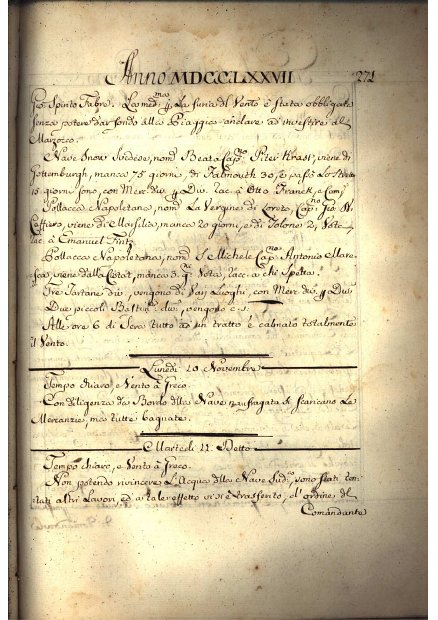 Anno MDCCLXXVII 271
Gio. Spinto Fabre. La med.ma p. La furia del Vento è stata obbligata
senza potere dar fondo alla Piaggia andare ad investire al
Marzocco.
Nave Snow Svidese, nom.a Beata Cap.no Piter Krast, viene di
Gottemburgh, manca 75 giorni, di Falmouth 30, e passò Lo Stretto
15 giorni sono, con Merc. div. p. Div. Rac. a Otto Franck, e Comp.
Pollacca Napoletana, nom.a La Vergine di Loreto, Cap.no Gio. B.
Caffiero, viene di Marsilia, manca 20 giorni, e di Tolone 2, Vota
Rac. a Emanuel Fintz.
Pollacca Napoletana, nom.a S. Michele Cap.no Antonio Mare-
sca, viene dalla Ciotat, manca 3. gi. Vota, Racc. a chi Spetta.
Tre Tartane div. vengono di Varj Luoghi, con Merc. div. p. Div.
Due piccoli Bastim. div. vengono c. s.
Alle ore 6 di Sera tutto ad un tratto è calmato totalmente
il Vento.
Lunedì 10 Novembre
Tempo chiaro, e Vento a Greco.
Con diligenza da Bordo della Nave naufragata si scaricano Le
Mercanzie, ma tutte bagnate.
Martedì 11 Detto
Tempo chiaro, e Vento a Greco.
Non potendo rivincere L'Acqua della Nave Sud.a sono stati ten-
tati altri Lavori, ed a tale effetto vi si è trasferito, d'ordine del
Comandante